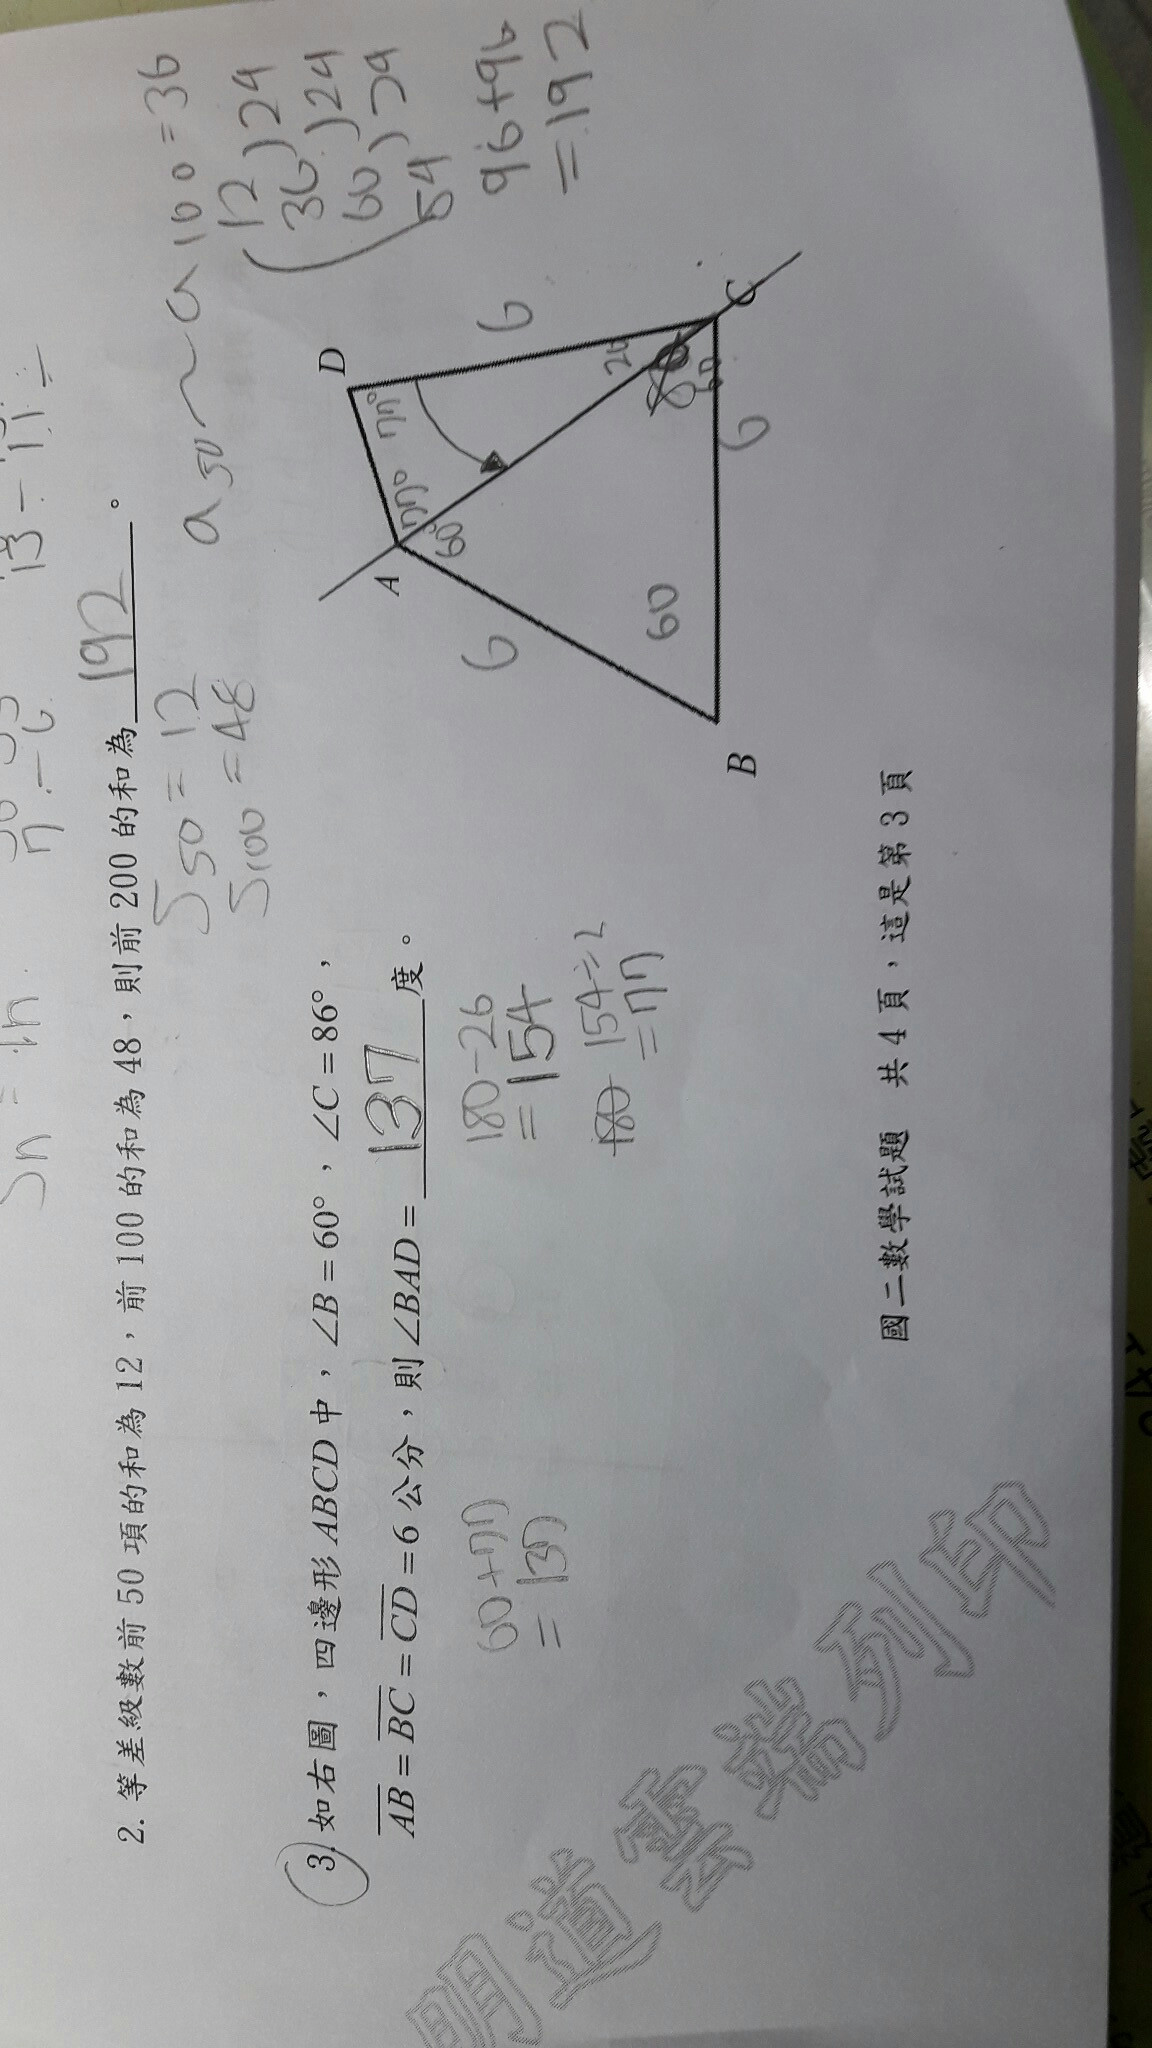 13 - 11 =
2. 等差級數前 50 項的和為 12，前 100 的和為 48，則前 200 的和為 192 。
S50 = 12
S100 = 48
a50 ~ a100 = 36
12 ) 24
36 ) 24
60 ) 24
84
96+96
=192
3. 如右圖，四邊形 ABCD 中，∠B = 60°，∠C = 86°，
AB = BC = CD = 6 公分，則 ∠BAD = 137 度。
60+77
= 137
180-26
= 154
180 154÷2
= 77
D
77°
6
77°
A
60
26
C
6
60
60
6
B
國二數學試題 共 4 頁，這是第 3 頁
明道雲端列印